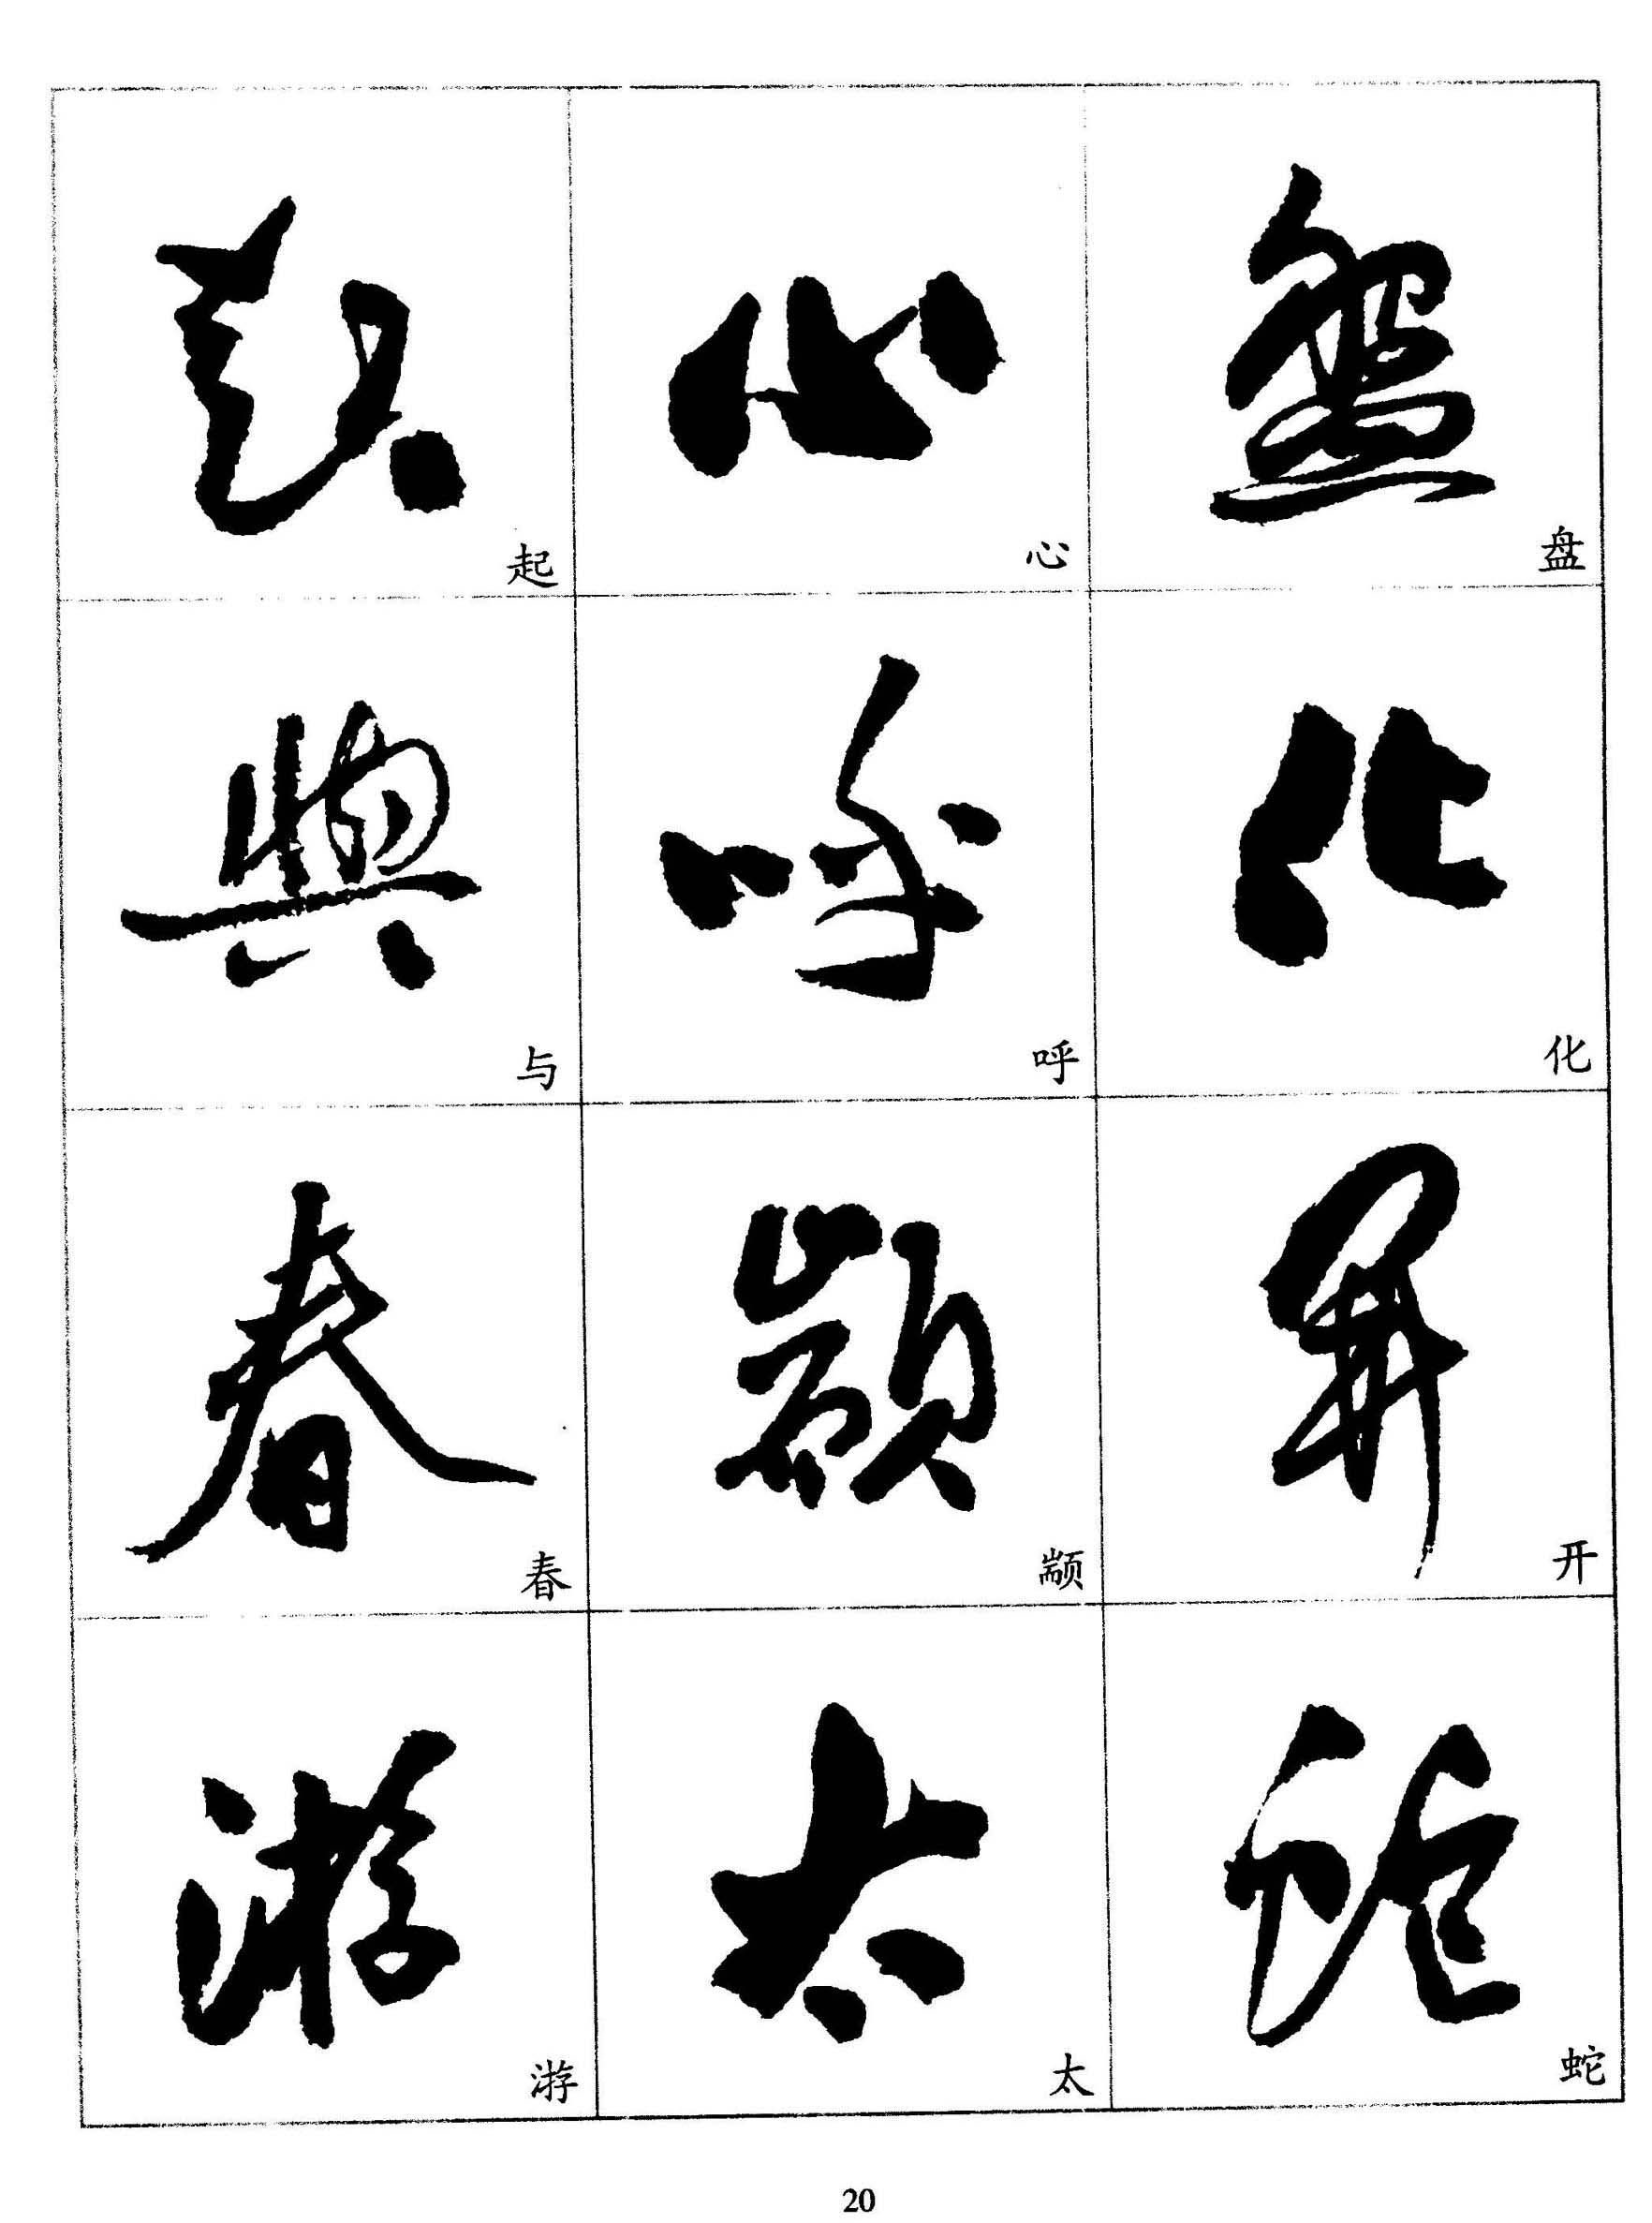 盤化開蛇
盘化开蛇
心呼顓太
心呼颛太
起與春游
起与春游
20